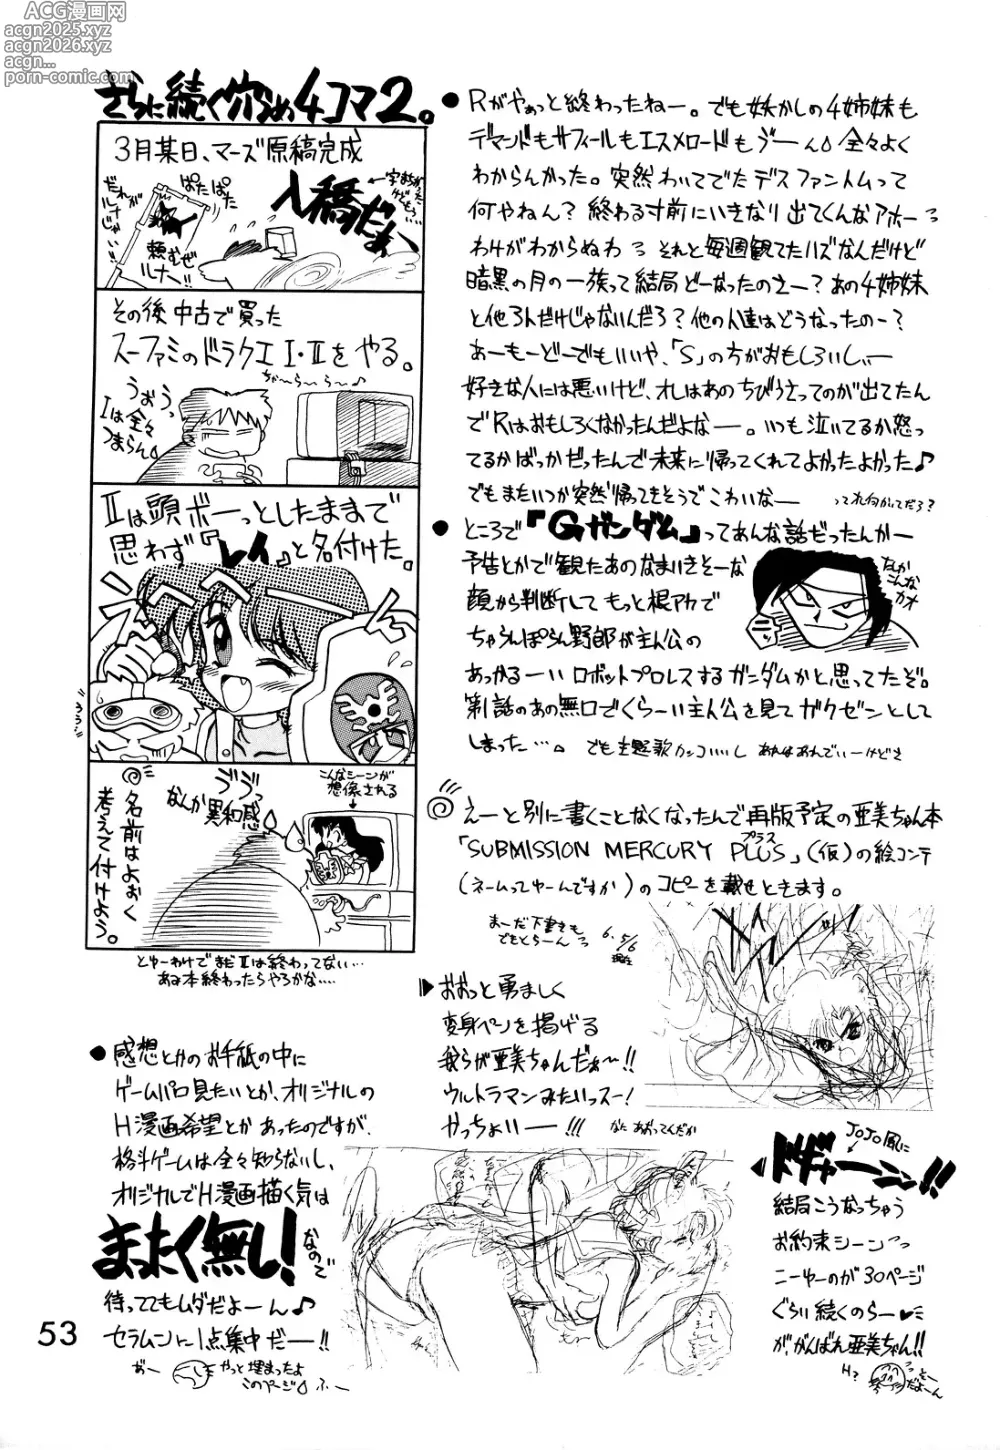 ACG漫画网
acgn2025.xyz
acgn2026.xyz
acgn...
porn-comic.com
さらに続く穴うめ4コマ2。
3月某日、マーズ原稿完成
だれが
ルナじゃい
ぱたぱた
頼むぜ
ルナへ
入稿だぁ
その後中古で買った
スーファミのドラクエⅠ・Ⅱをやる。
うおぅっ
Ⅰは全々
つまらん
Ⅱは頭ボーっとしたままで
思わず『レイ』と名付けた。
ううう
こんなシーンが
想像される
なんか異和感
名前はよぉく
考えて付けよう。
とゆーわけでまだⅡは終わってない…
あみ本終わったらやろかな….
●Rがやぁっと終わったねー。でも妖かしの4姉妹も
デマンドもサフィールもエスメロードもう゛ーん全々よく
わからんかった。突然わいてでたデスファントムって
何やねん？終わる寸前にいきなり出てくんなアホーっ
わけがわからぬわっ それと毎週観てたハズなんだけど
暗黒の月の一族って結局どーなったのさー？あの4姉妹
と他3人だけじゃないんだろ？他の人達はどうなったのー？
あーもーどーでもいいや、「S」の方がおもしろいしぃー
好きな人には悪いけど、オレはあのちびうさってのが出てたん
でRはおもしろくなかったんだよなー。いつも泣いてるか怒っ
てるかばっかだったんで未来に帰ってくれてよかったよかった♪
でもまたいつか突然帰ってきそうでこわいなー
ってれ何かいてだろ？
●ところで『Gガンダム』ってあんな話だったんかー
予告とかで観たあのなまいきそーな
顔から判断してもっと根アカで
ちゃらんぽらん野郎が主人公の
あっかるーいロボットプロレスするガンダムかと思ってたぞ。
第1話のあの無口でくらーい主人公を見てガクゼンとして
しまった….
でも主題歌カッコいいし
なんか
こんな
カオ
えーと別に書くことなくなったんで再版予定の亜美ちゃん本
「SUBMISSION MERCURY PLUS」(仮)の絵コンテ
プラス
(ネームってゆーんですか)のコピーを載せときます。
まーだ下書きも
でもとらーんっ
6.5/6
現在
▶おおっと勇ましく
変身ペンを掲げる
我らが亜美ちゃんだぁ〜!!
ウルトラマンみたいっスー!
かっちょいいー!!!
●感想とかのお手紙の中に
ゲームパロ見たいとか、オリジナルの
H漫画希望とかあったのですが、
格斗ゲームは全々知らないし、
オリジナルでH漫画描く気は
まったく無し!なので
待っててもムダだよーん♪
セラムンに1点集中だー!!
おー
やっと埋まったよ
このページ
ふー
JOJO風に
◀ドギャーニン!!
結局こうなっちゃう
お約束シーンっ
こーゆーのが30ページ
ぐらい続くのらー♥
が、がんばれ亜美ちゃん!!
H?
そー
だよーん
53